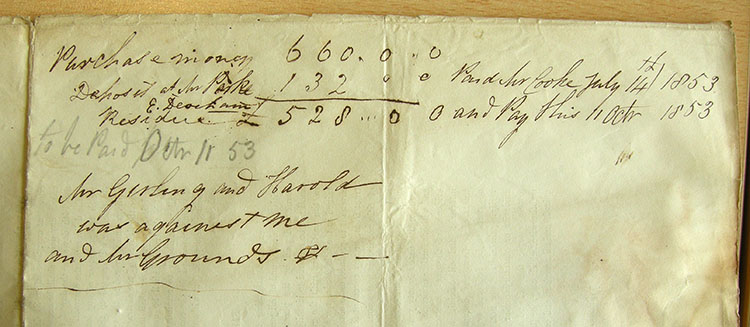 Purchase money 660..0..0
Deposit at Mr Peke 132 0 0
E. Dereham
Residue £ 528...0 0
to be Paid Octr 11 53
Paid Mr Cooke July 14th 1853
and Pay this 11 Octr 1853
Mr Girling and Harold
was against me
and Mr Grounds